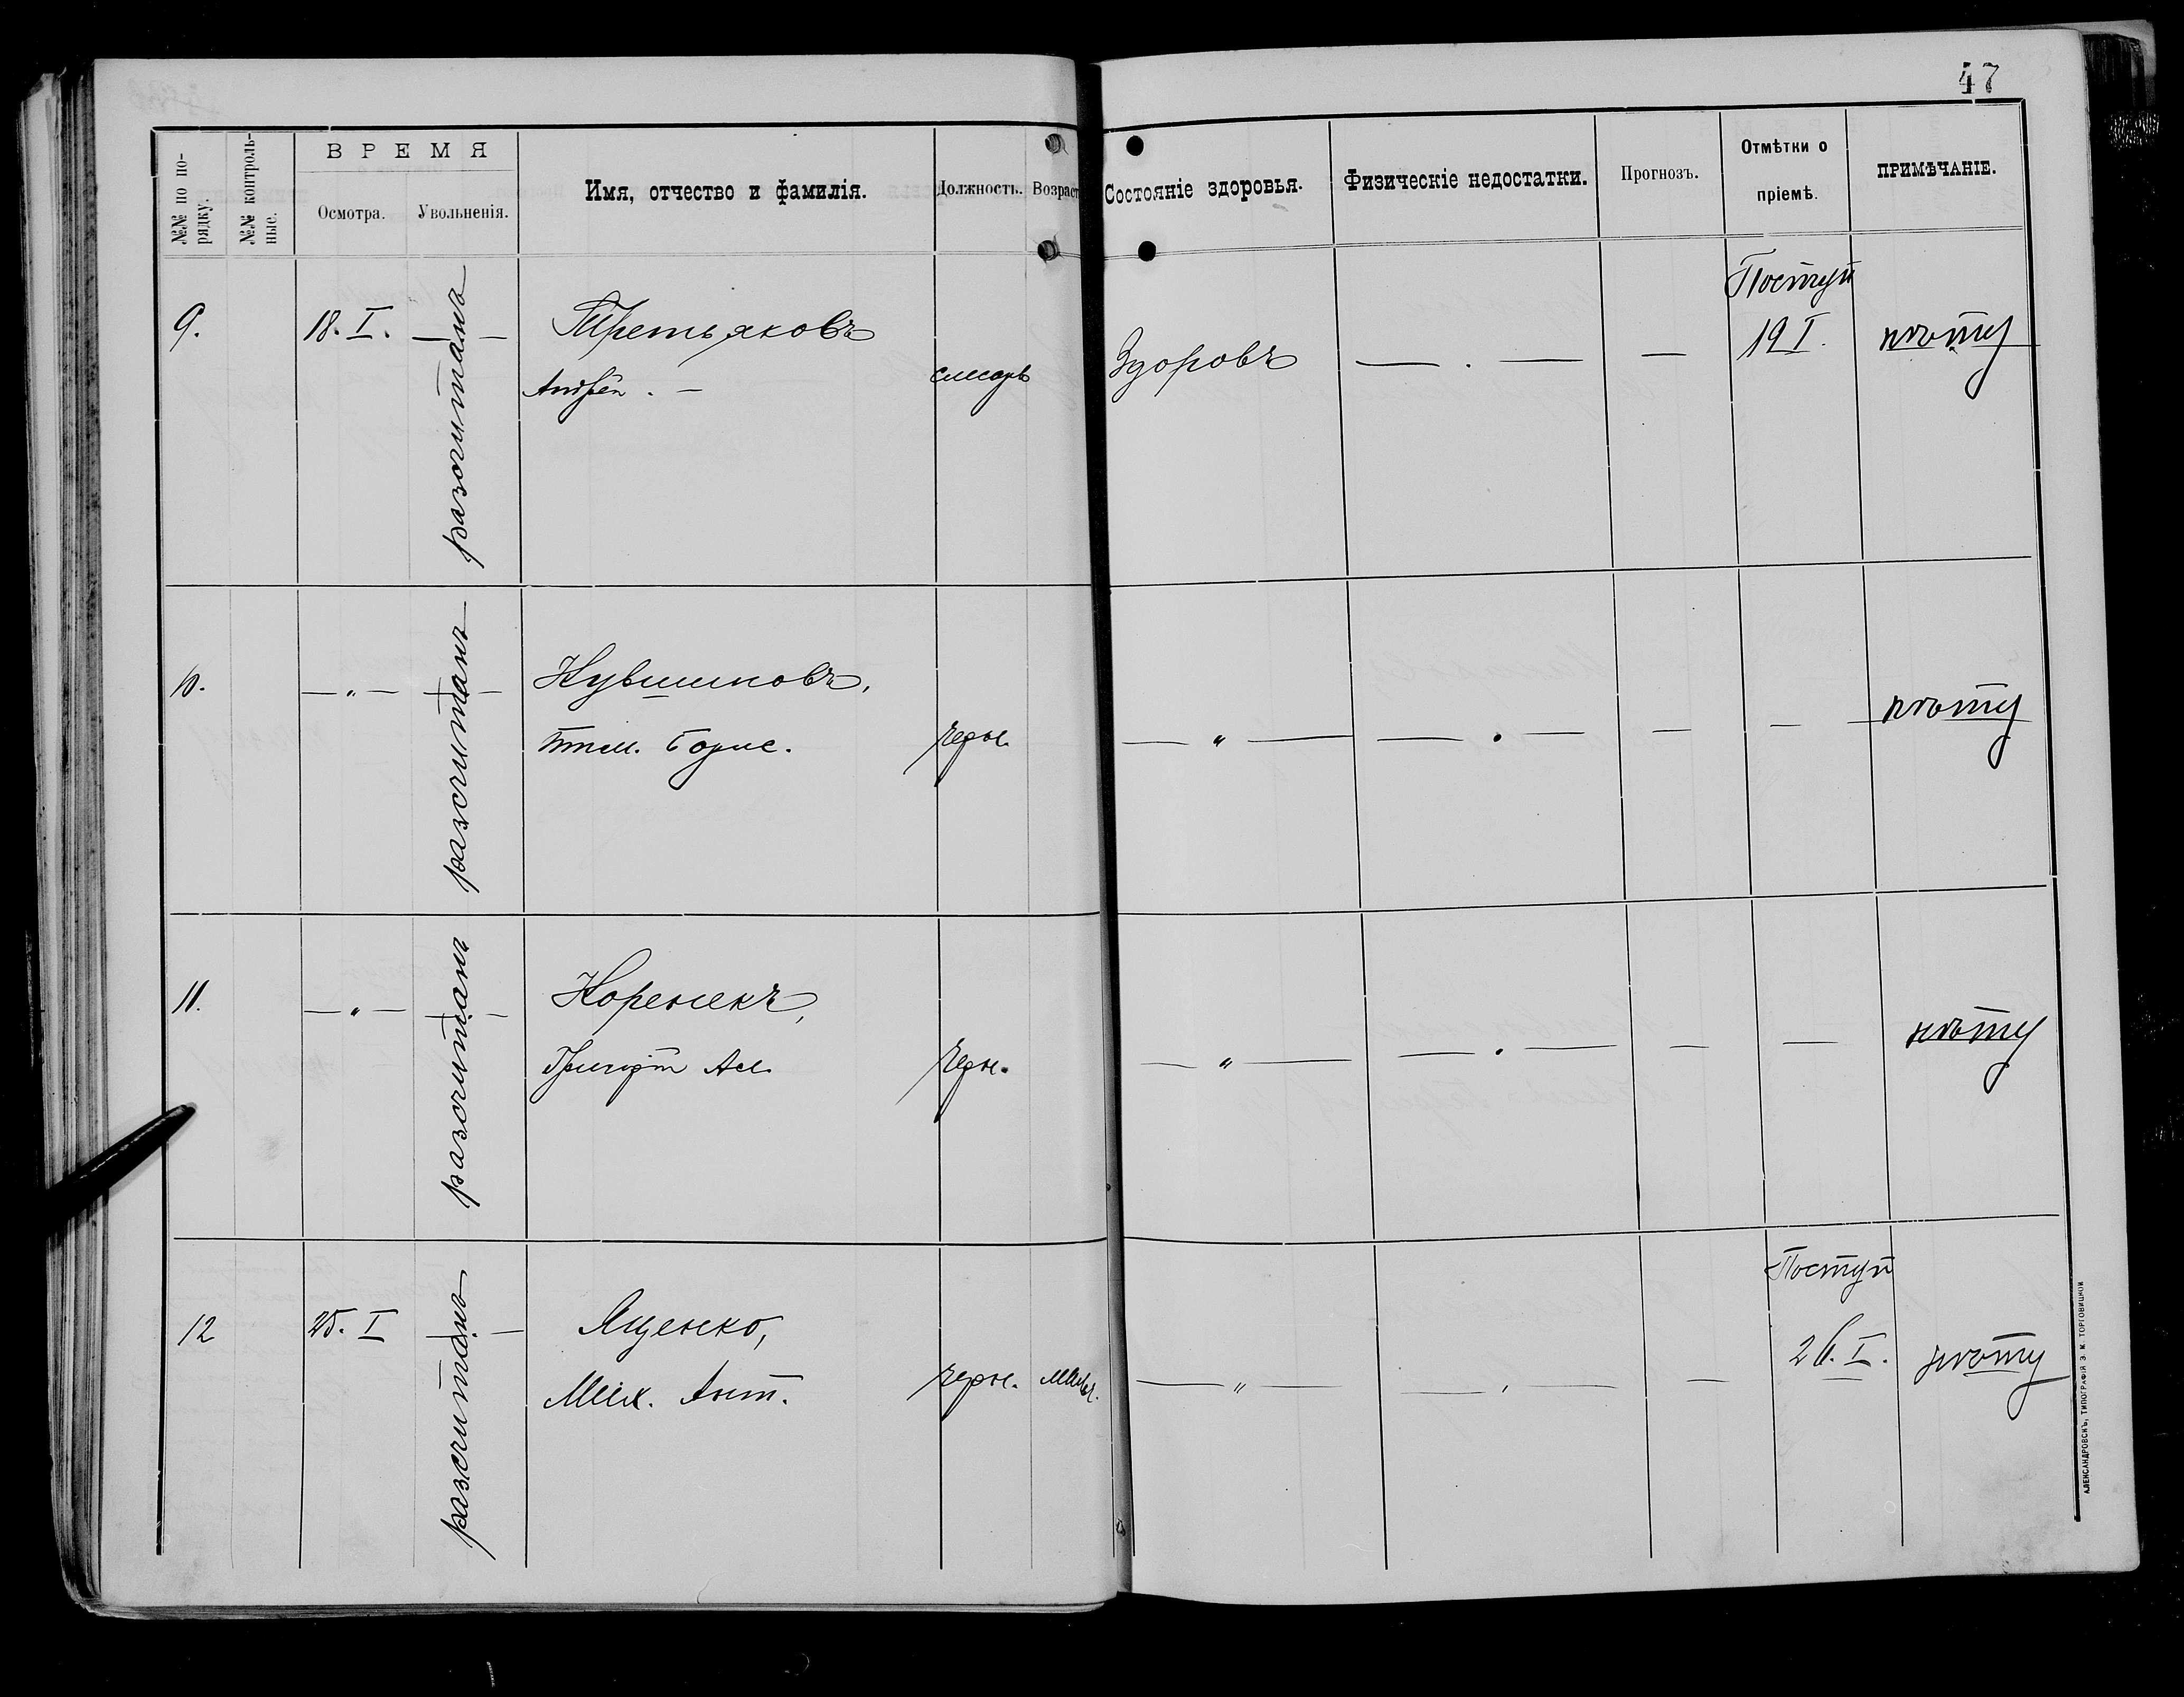 47
№№ по по-
рядку.
№№ контроль-
ные.
ВРЕМЯ
Осмотра.
Увольненія.
Имя, отчество и фамилія.
Должность.
Возраст
Состояніе здоровья.
Физическіе недостатки.
Прогнозъ.
Отмѣтки о
пріемѣ.
ПРИМѢЧАНІЕ.
9.
18. I.
разсчитанъ
Третьяковъ
Андрей. —
слесарь
Здоровъ
— . —
—
Поступ
19 I.
10.
— „ —
разсчитанъ
Кувшиновъ,
Борис.
черн.
— „ —
— . —
—
—
11.
— „ —
разсчитанъ
Коренекъ,
Григорій
черн.
— „ —
— . —
—
—
12
25. I
разсчитанъ
Яценко,
Мих. Ант.
черн.
— „ —
— . —
—
Поступ
26. I.
АЛЕКСАНДРОВСКЪ, ТИПОГРАФІЯ Э. М. ТОРГОВИЦКОЙ